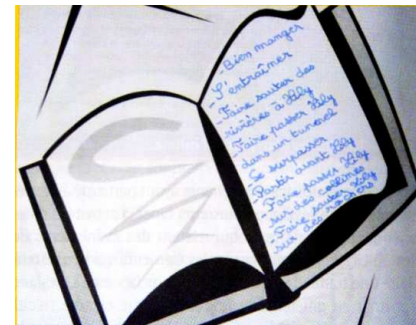 - Bien manger
- S'entraîner
- Faire sauter des
rivières à Lily
- Faire passer Lily
dans un tunnel
- Se surpasser
- Partir avant Lily
- Faire passer Lily
sur des collines
- Faire sauter Lily
sur des rochers